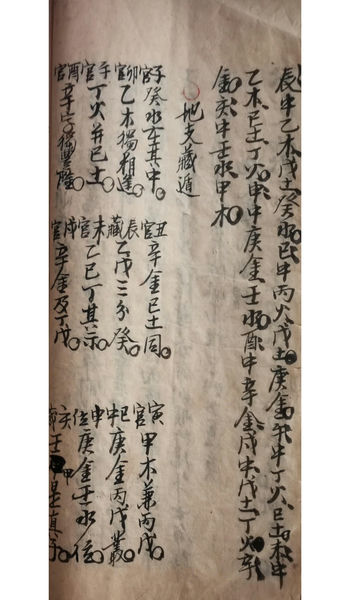 辰中乙木戊土癸水巳中丙火戊土庚金午中丁火己土未中
乙木己土丁火申中庚金壬水酉中辛金戌中戊土丁火辛
金亥中壬水甲木
地支藏遁
子宮癸水在其中 丑宮辛金己土同 寅宮甲木兼丙戊
卯宮乙木獨相逢 辰藏乙戊三分癸 巳中庚金丙戊叢
午宮丁火并己土 未宮乙己丁其宗 申位庚金壬水位
酉宮辛字獨豐隆 戌宮辛金及丁戊 亥壬甲是真